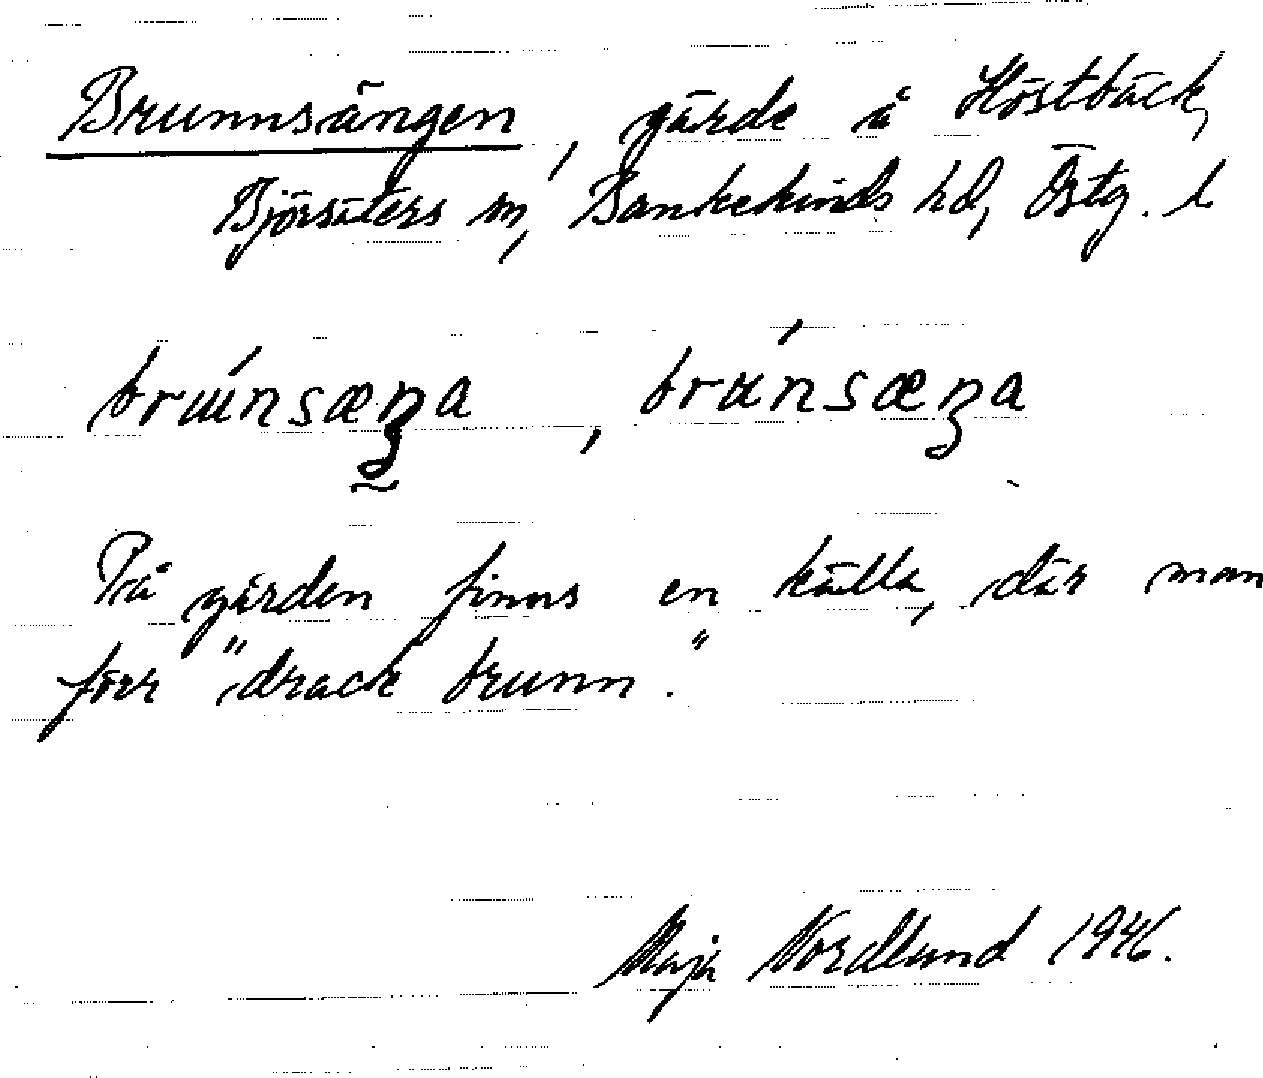 Brunnsängen, gärde å Höstbäck,
Björsäters sn, Bankekinds hd, Östg. l
brunsæŋa, brunsæŋa
På gärden finns en källa, där man
förr "drack brunn."
Maja Nordlund 1946.